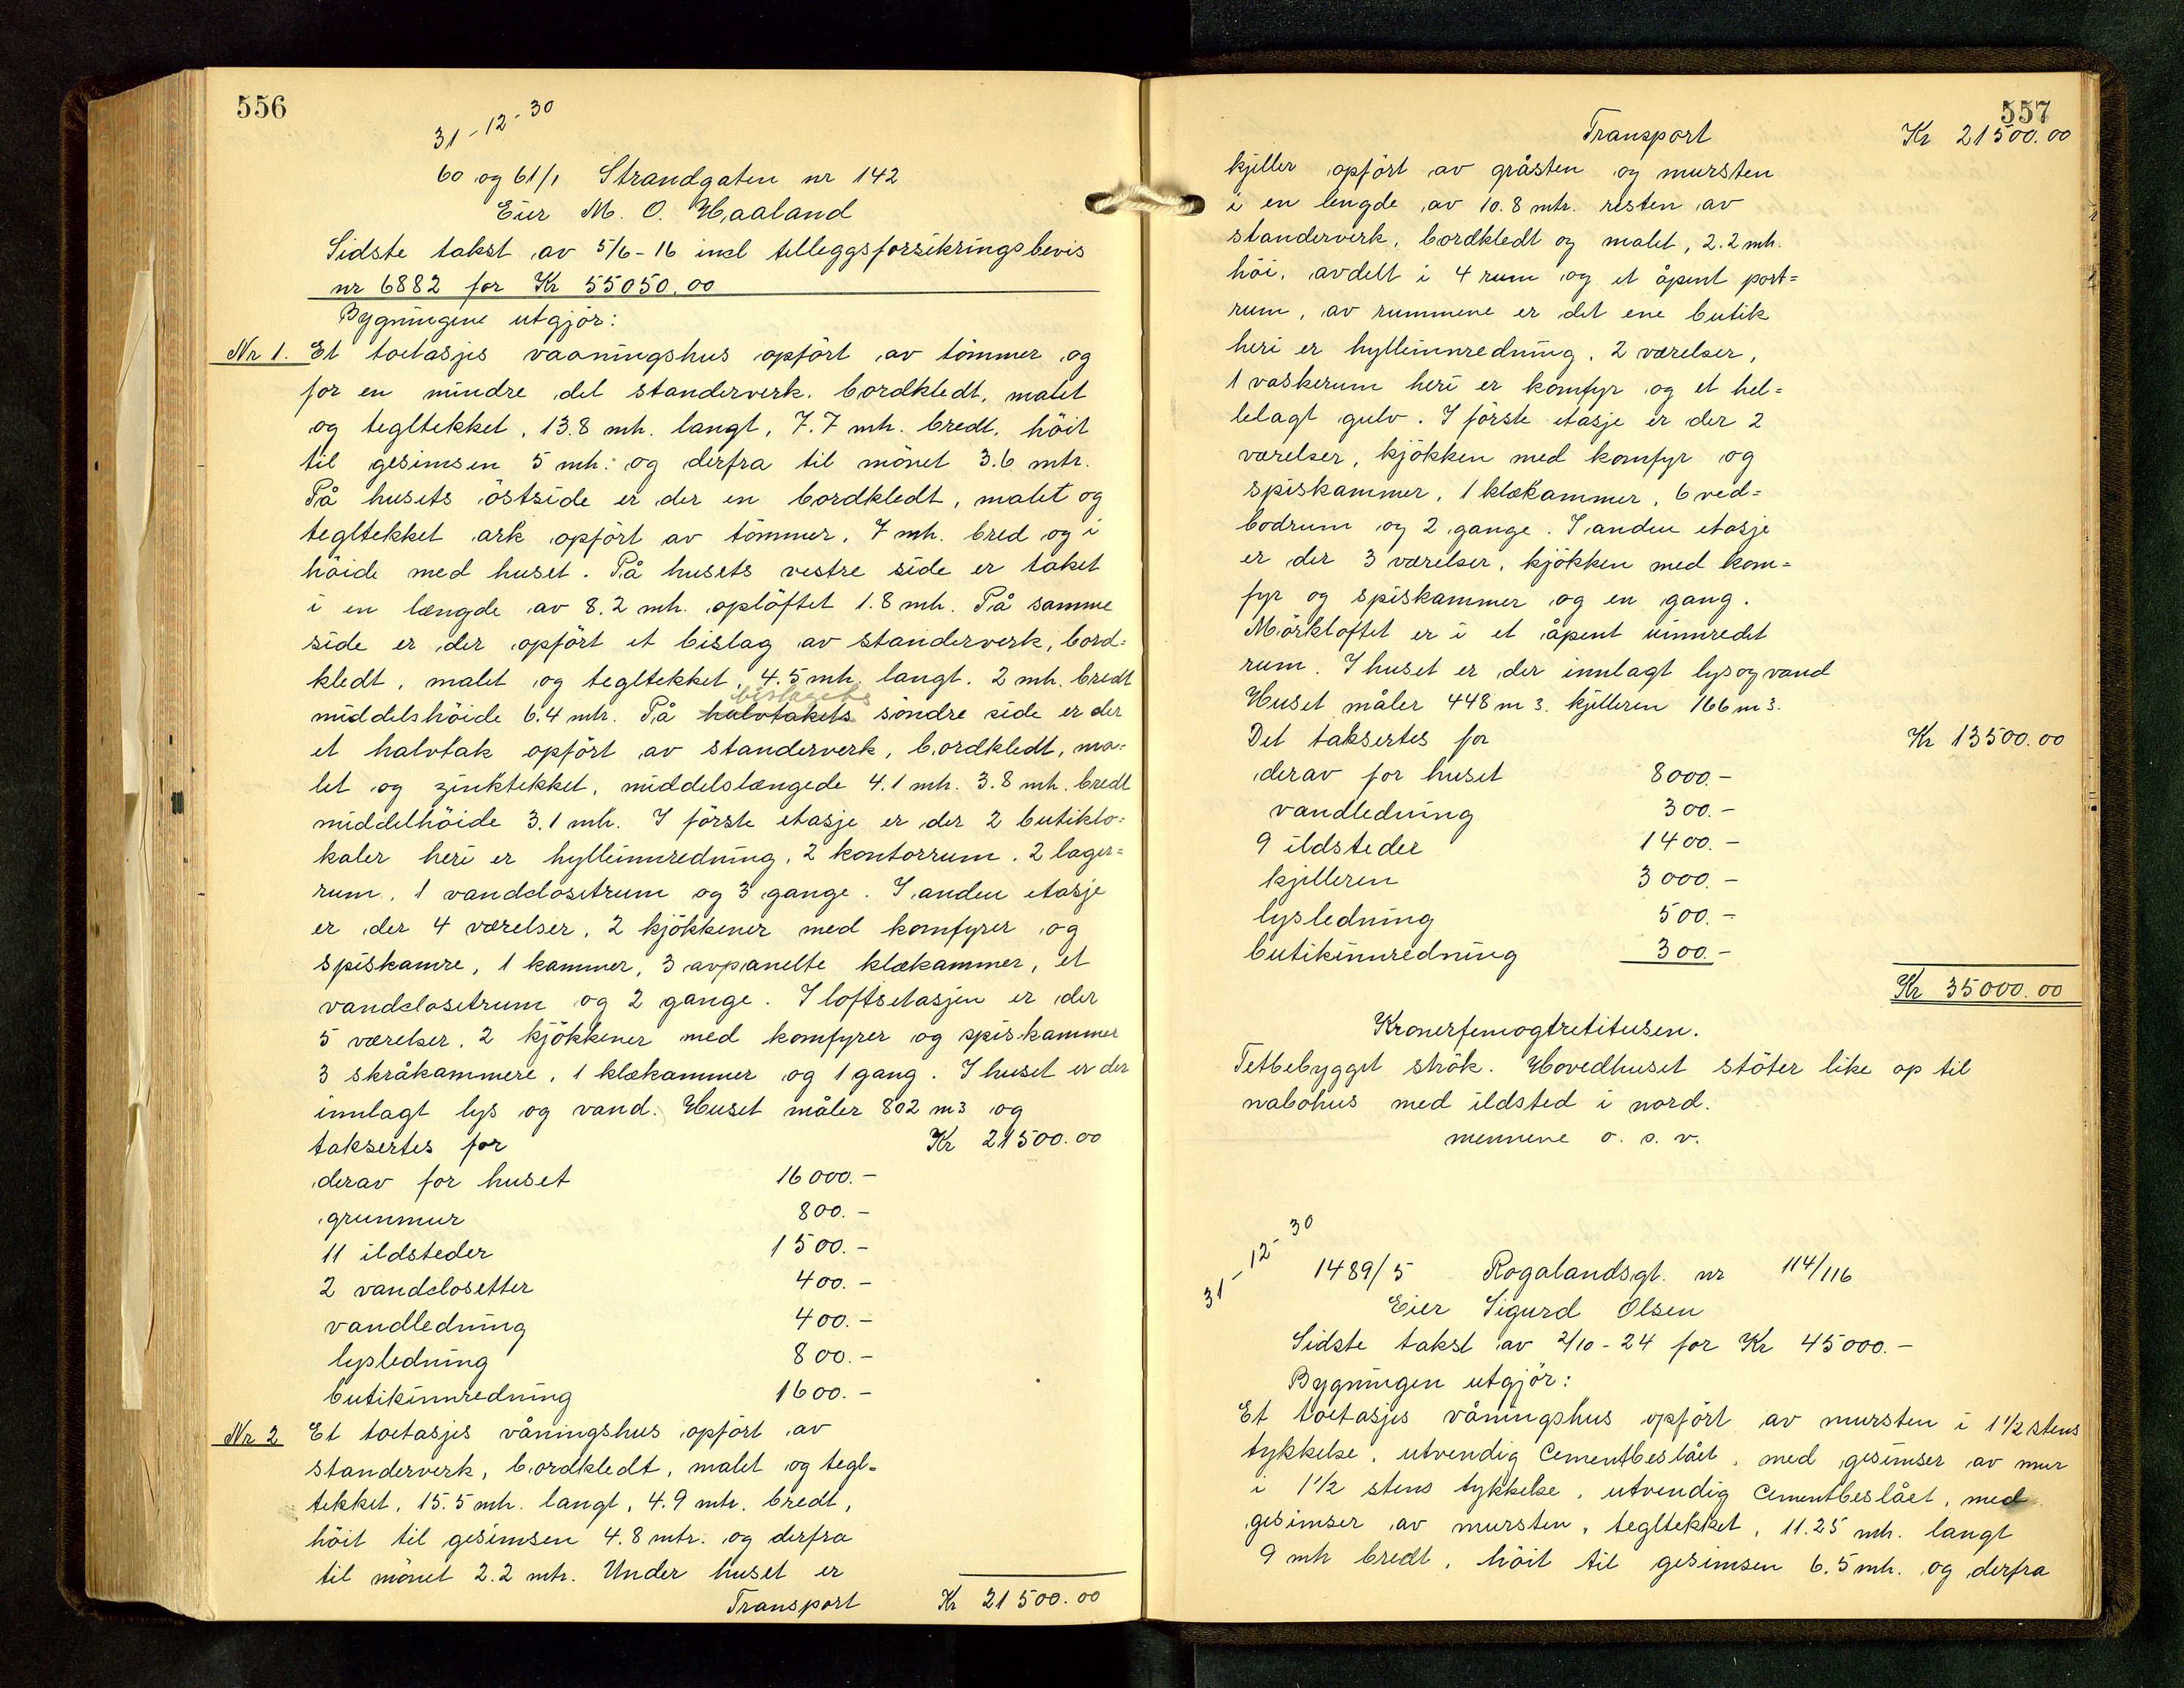 556
31-12-30
60 og 61/1 Strandgaten nr 142
Eier M. O. Haaland
Sidste takst av 5/6-16 incl tilleggsforsikringsbevis
nr 6882 for Kr 55050.00
Bygningene utgjör:
Nr 1. Et toetasjes vaaningshus opfört av tömmer og
for en mindre del standerverk. bordkledt, malet
og tegltekket, 13.8 mtr. langt, 7.7 mtr. bredt, höit
til gesimsen 5 mtr. og derfra til mönet 3.6 mtr.
På husets östside er der en bordkledt, malet og
tegltekket ark opfört av tömmer, 7 mtr. bred og i
höide med huset. På husets vestre side er taket
i en længde av 8.2 mtr. oplöftet 1.8 mtr. På samme
side er der opfört et bislag av standerverk, bord=
kledt, malet og tegltekket, 4.5 mtr. langt. 2 mtr. bredt
bislagets
middelshöide 6.4 mtr. På halvtakets söndre side er der
et halvtak opfört av standerverk, bordkledt, ma=
let og zinktekket, middelslængede 4.1 mtr. 3.8 mtr. bredt
middelhöide 3.1 mtr. I förste etasje er der 2 butiklo=
kaler heri er hylleinnredning, 2 kontorrum, 2 lager=
rum, 1 vandclosetrum og 3 gange. I anden etasje
er der 4 værelser, 2 kjökkener med komfyrer og
spiskamre, 1 kammer, 3 avpanelte klækammer, et
vandclosetrum og 2 gange. I loftsetasjen er der
5 værelser, 2 kjökkener med komfyrer og spiskammer
3 skråkammere, 1 klækammer og 1 gang. I huset er der
innlagt lys og vand. Huset måler 802 m3 og
taksertes for Kr 21500.00
derav for huset 16000.-
grunmur 800.-
11 ildsteder 1500.-
2 vandclosetter 400.-
vandledning 400.-
lysledning 800.-
butikinnredning 1600.-
Nr 2 Et toetasjes våningshus opfört av
standerverk, bordkledt, malet og tegl=
tekket, 15.5 mtr. langt, 4.9 mtr. bredt,
höit til gesimsen 4.8 mtr. og derfra
til mönet 2.2 mtr. Under huset er
Transport Kr 21500.00
557
Transport Kr 21500.00
kjeller opfört av gråsten og mursten
i en lengde av 10.8 mtr. resten av
standerverk, bordkledt og malet, 2.2 mtr.
höi, avdelt i 4 rum og et åpent port=
rum, av rummene er det ene butik
heri er hylleinnredning, 2 værelser,
1 vaskerum heri er komfyr og et hel=
lelagt gulv. I förste etasje er der 2
værelser, kjökken med komfyr og
spiskammer, 1 klækammer, 6 ved=
bodrum og 2 gange. I anden etasje
er der 3 værelser, kjökken med kom=
fyr og spiskammer og en gang.
Mörkloftet er i et åpent uinnredet
rum. I huset er der innlagt lys og vand
Huset måler 448 m3. kjelleren 166 m3.
Det taksertes for Kr 13500.00
derav for huset 8000.-
vandledning 300.-
9 ildsteder 1400.-
kjelleren 3000.-
lysledning 500.-
butikinnredning 300.-
Kr 35000.00
Kronerfemogtretitusen.
Tettbebygget strök. Hovedhuset stöter like op til
nabohus med ildsted i nord.
mennene o. s. v.
31-12-30
1489/5 Rogalandsgt. nr 114/116
Eier Sigurd Olsen
Sidste takst av 2/10-24 for Kr 45000.-
Bygningen utgjör:
Et toetasjes våningshus opfört av mursten i 1 1/2 stens
tykkelse, utvendig Cementbeslået, med gesimser av mur
i 1 1/2 stens tykkelse, utvendig Cementbeslået, med
gesimser av mursten, tegltekket, 11.25 mtr. langt
9 mtr bredt, höit til gesimsen 6.5 mtr. og derfra